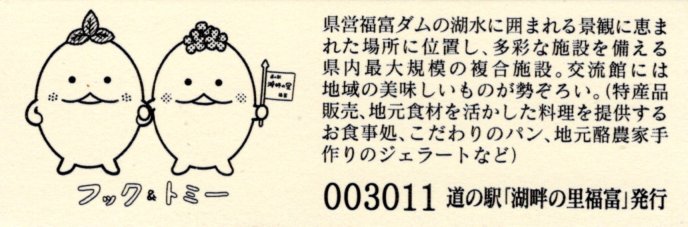 県営福富ダムの湖水に囲まれる景観に恵ま
れた場所に位置し、多彩な施設を備える
県内最大規模の複合施設。交流館には
地域の美味しいものが勢ぞろい。(特産品
販売、地元食材を活かした料理を提供する
お食事処、こだわりのパン、地元酪農家手
作りのジェラートなど)
湖畔の里
フック&トミー
003011 道の駅「湖畔の里福富」発行